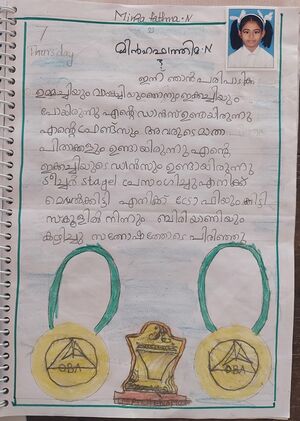 Minha fathma.N
7
Thursday
മിൻഹഫാത്തിമ.N
ഇന്ന് ഞാൻ പരിപാടിക്ക്
ഉമ്മച്ചിയും വാപ്പച്ചിയും ഞാനും ഇക്കച്ചിയും
പോയിരുന്നു എന്റെ ഡാൻസ് ഉണ്ടായിരുന്നു
എന്റെ ഫ്രണ്ട്സും അവരുടെ മാതാ
പിതാക്കളും ഉണ്ടായിരുന്നു എന്റെ
ഇക്കച്ചിയുടെ ഡാൻസും ഉണ്ടായിരുന്നു
ടീച്ചർ stagel പ്രസംഗിച്ചു എനിക്ക്
മെഡൽ കിട്ടി എനിക്ക് ട്രോഫിയും കിട്ടി
സ്കൂളിൽ നിന്നും ബിരിയാണിയും
കഴിച്ചു സന്തോഷത്തോടെ പിരിഞ്ഞു
OBA
OBA